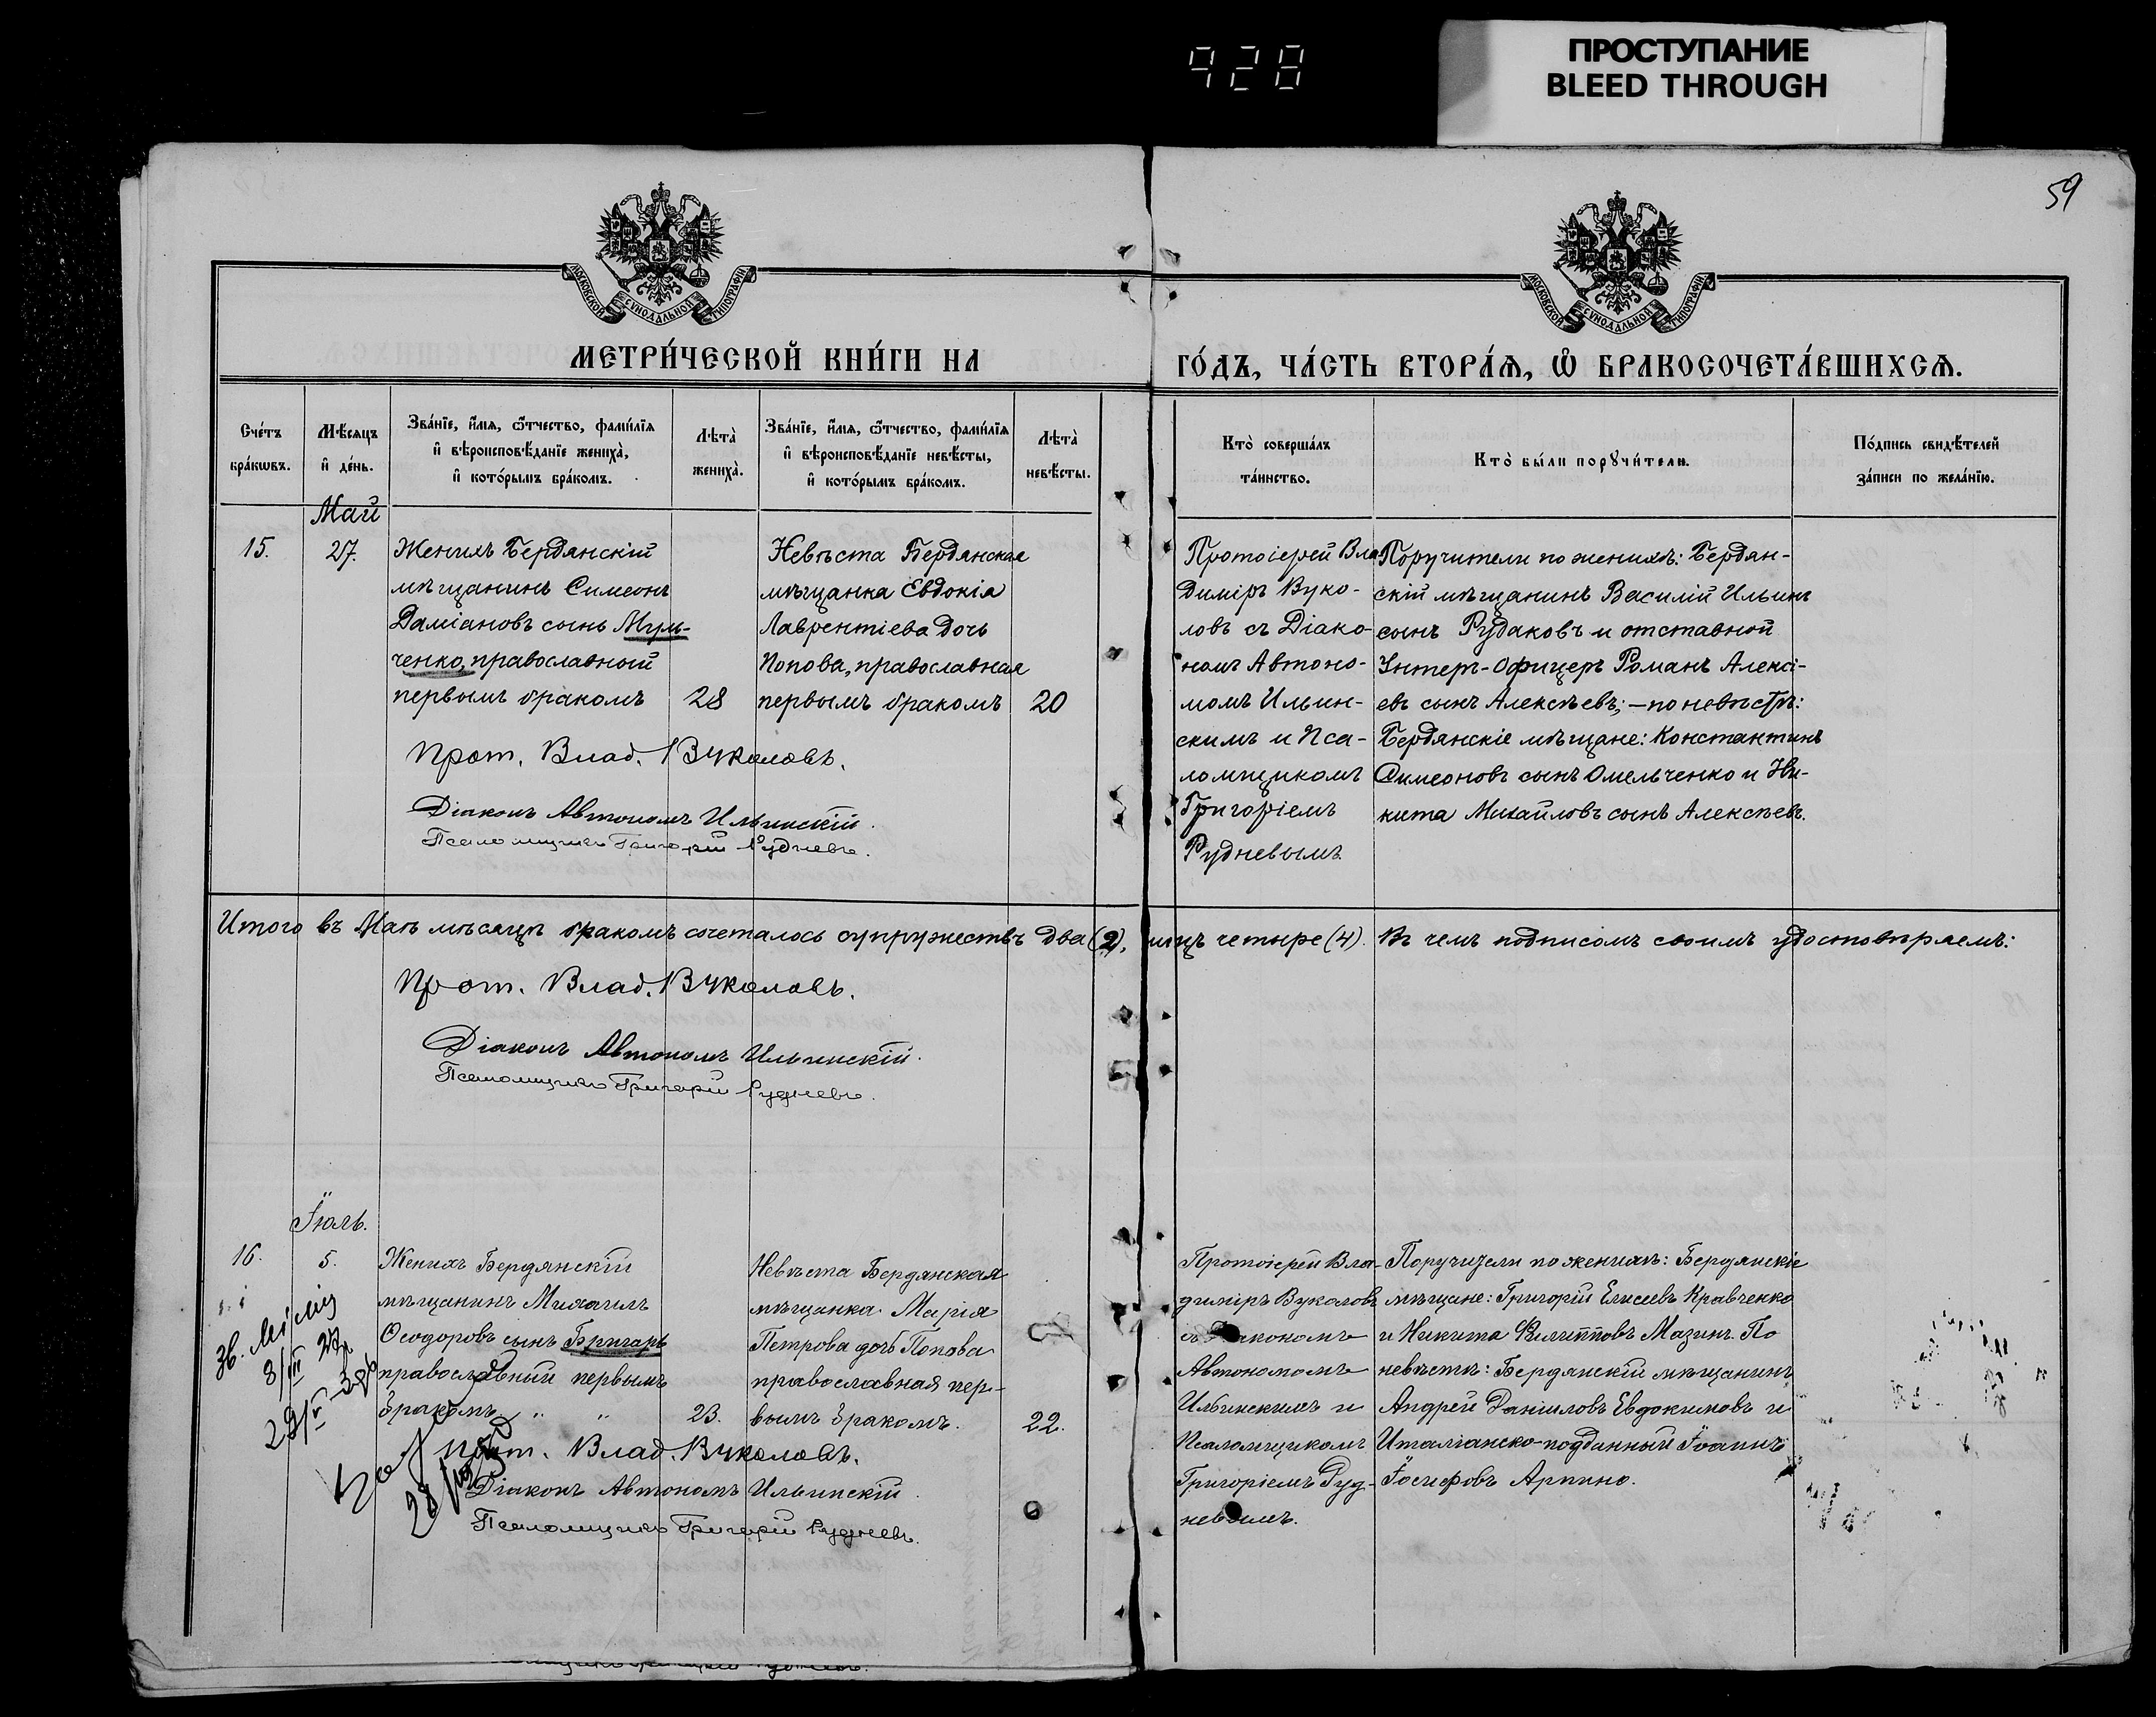 928
ПРОСТУПАНИЕ
BLEED THROUGH
59
МОСКОВСКОЙ СУНОДАЛЬНОЙ ТИПОГРАФІИ
МОСКОВСКОЙ СУНОДАЛЬНОЙ ТИПОГРАФІИ
МЕТРИ́ЧЕСКОЙ КНИ́ГИ НА
ГО́ДЪ, ЧА́СТЬ ВТОРА́Я, Ѽ БРАКОСОЧЕТА́ВШИХСЯ.
Сче́тъ
бра́кѡвъ.
Мѣ́сяцъ
и҆ де́нь.
Зва́нїе, и҆́мя, ѻ҆́тчество, фами́лїя
и҆ вѣроисповѣ́данїе жениха̀,
и҆ кото́рымъ бра́комъ.
Лѣта̀
жениха̀.
Зва́нїе, и҆́мя, ѻ҆́тчество, фами́лїя
и҆ вѣроисповѣ́данїе невѣ́сты,
и҆ кото́рымъ бра́комъ.
Лѣта̀
невѣ́сты.
Кто̀ соверша́лъ
та́инство.
Кто̀ бы́ли порꙋчи́тели.
По́дпись свидѣ́телей
за́писи по жела́нїю.
Май
15.
27.
Женихъ Бердянскій
мѣщанинъ Симеонъ
Даміановъ сынъ Муль-
ченко, православный
первымъ бракомъ
28
Невѣста Бердянская
мѣщанка Евдокія
Лаврентіева дочь
Попова, православная
первымъ бракомъ
20
Протоіерей Вла-
диміръ Вуко-
ловъ съ Діако-
номъ Автоно-
момъ Ильин-
скимъ и Пса-
ломщикомъ
Григоріемъ
Рудневымъ.
Поручители по женихѣ: Бердян-
скій мѣщанинъ Василій Ильинъ
сынъ Рудаковъ и отставной
Унтеръ-Офицеръ Романъ Алексі-
евъ сынъ Алексѣевъ; — по невѣстѣ:
Бердянскіе мѣщане: Константинъ
Симеоновъ сынъ Омельченко и Ни-
кита Михайловъ сынъ Алексѣевъ.
Прот. Влад. Вуколовъ.
Діаконъ Автономъ Ильинскій.
Псаломщикъ Григорій Рудневъ.
Итого въ Маѣ мѣсяцѣ бракомъ сочеталось супружествъ два (2), лицъ четыре (4). Въ чемъ подписомъ своимъ удостовѣряемъ:
Прот. Влад. Вуколовъ.
Діаконъ Автономъ Ильинскій.
Псаломщикъ Григорій Рудневъ.
Іюль.
16.
5.
Женихъ Бердянскій
мѣщанинъ Михаилъ
Ѳеодоровъ сынъ Бригарь
православный первымъ
бракомъ " "
23.
Невѣста Бердянская
мѣщанка Марія
Петрова дочь Попова
православная пер-
вымъ бракомъ.
22.
Протоіерей Вла-
димiръ Вуколовъ
съ Діакономъ
Автономомъ
Ильинскимъ и
Псаломщикомъ
Григоріемъ Руд-
невымъ.
Поручители по женихѣ: Бердянскіе
мѣщане: Григорій Елисеевъ Кравченко
и Никита Филипповъ Мазинъ. По
невѣстѣ: Бердянскій мѣщанинъ
Андрей Даниловъ Евдокимовъ и
Италіанско-подданный Іоаннъ
Іосифовъ Арпино.
Прот. Влад. Вуколовъ.
Діаконъ Автономъ Ильинскій.
Псаломщикъ Григорій Рудневъ.